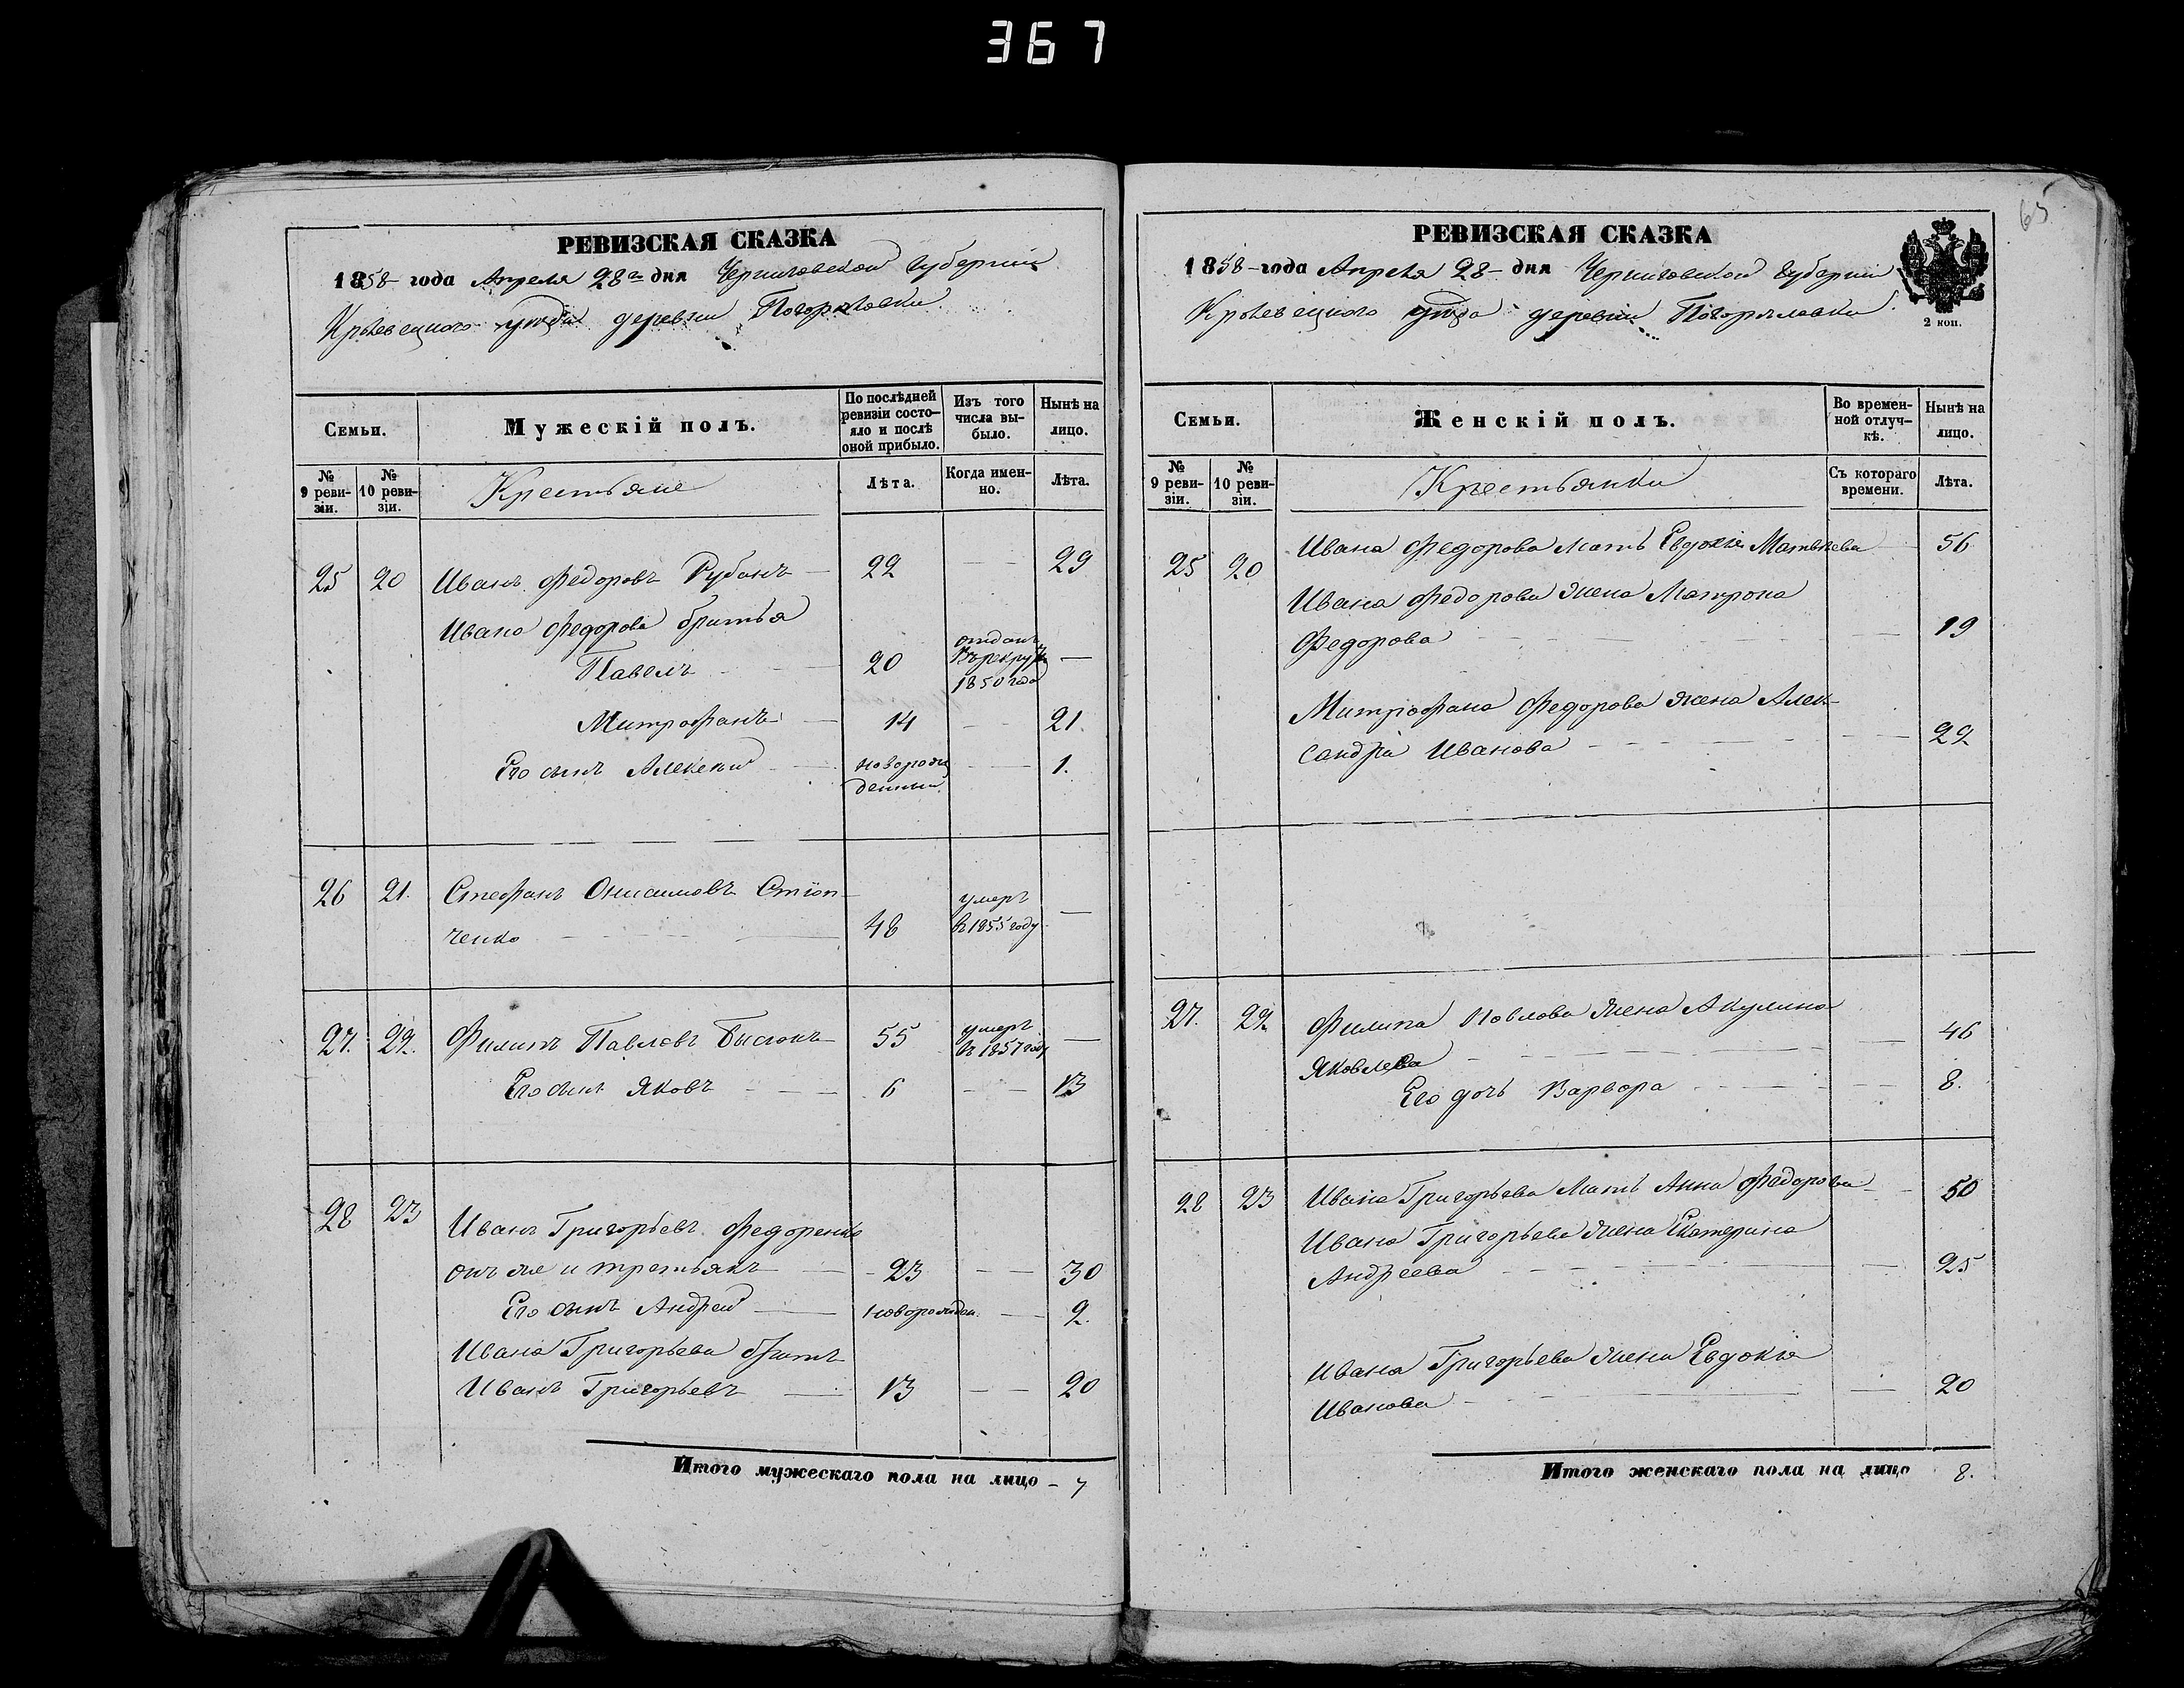 367
РЕВИЗСКАЯ СКАЗКА
1858 года Апреля 28 дня Черниговской Губернии
Кролевецкого уезда деревни Погореловки
Семьи.
Мужескій полъ.
По послѣдней ревизіи состо-
яло и послѣ
оной прибыло.
Изъ того
числа вы-
было.
Нынѣ на
лицо.
№
9 реви-
зіи.
№
10 реви-
зіи.
Крестьяне
Лѣта.
Когда имен-
но.
Лѣта.
25 20 Иванъ Федоровъ Рубанъ 22 — — 29
Ивана Федорова братья
Павелъ 20 отданъ въ рекруты 1850 года —
Митрофанъ 14 — 21.
Его сынъ Алексей новорож
денный — 1.
26 21. Стефанъ Онисимовъ
ченко 48 умеръ в 1855 году —
27. 22. Филипъ Павловъ 55 умеръ въ 1857 году —
Его сынъ Яковъ 6 — — 13
28 23 Иванъ Григорьевъ Федоренко
онъ же и третьякъ 23 — — 30
Его сынъ Андрей новорожден. — 2.
Ивана Григорьева братъ
Иванъ Григорьевъ 13 — — 20
Итого мужескаго пола на лицо - 7
65
РЕВИЗСКАЯ СКАЗКА
1858 года Апреля 28 дня Черниговской Губернии
Кролевецкого уезда деревни Погореловки.
2 коп.
Семьи.
Женскій полъ.
Во времен-
ной отлуч-
кѣ.
Нынѣ на
лицо.
№
9 реви-
зіи.
№
10 реви-
зіи.
Крестьянки
Съ котораго
времени.
Лѣта.
25 20 Ивана Федорова мать Евдокія Матвѣева 56
Ивана Федорова жена Матрона
Федорова 19
Митрофана Федорова жена Алек-
сандра Иванова 22
27. 22 Филипа Павлова жена Акулина
Яковлева 46
Его дочь Варвара 8.
28 23 Ивана Григорьева мать Анна Федорова 50
Ивана Григорьева жена Екатерина
Андреева 25
Ивана Григорьева жена Евдокія
Иванова 20
Итого женскаго пола на лицо 8.